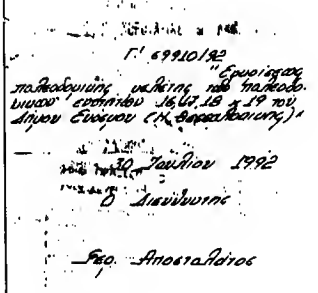 Γ.' 69910/92
"Εγκρίσεως
πολεοδομικής μελέτης των πολεοδο-
μικών ενοτήτων 16,17,18 & 19 του
Δήμου Ευόσμου (Ν. Θεσσαλονίκης)"
30 Ιουλίου 1992
Ο Διευθυντής
Γερ. Αποστολάτος